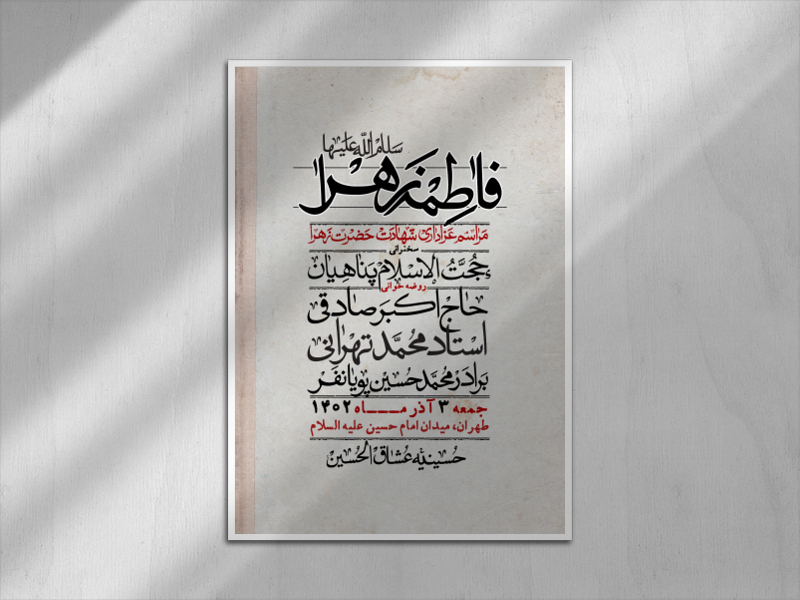 سلام الله علیها
فاطمه زهرا
مراسم عزاداری شهادت حضرت زهرا
سخنرانی
حجت الاسلام پناهیان
روضه خوانی
حاج اکبر صادقی
استاد محمد تهرانی
برادر محمد حسین پویانفر
جمعه ۳ آذر مـــاه ۱۴۰۲
طهران، میدان امام حسین علیه السلام
حسینیه عشاق الحسین